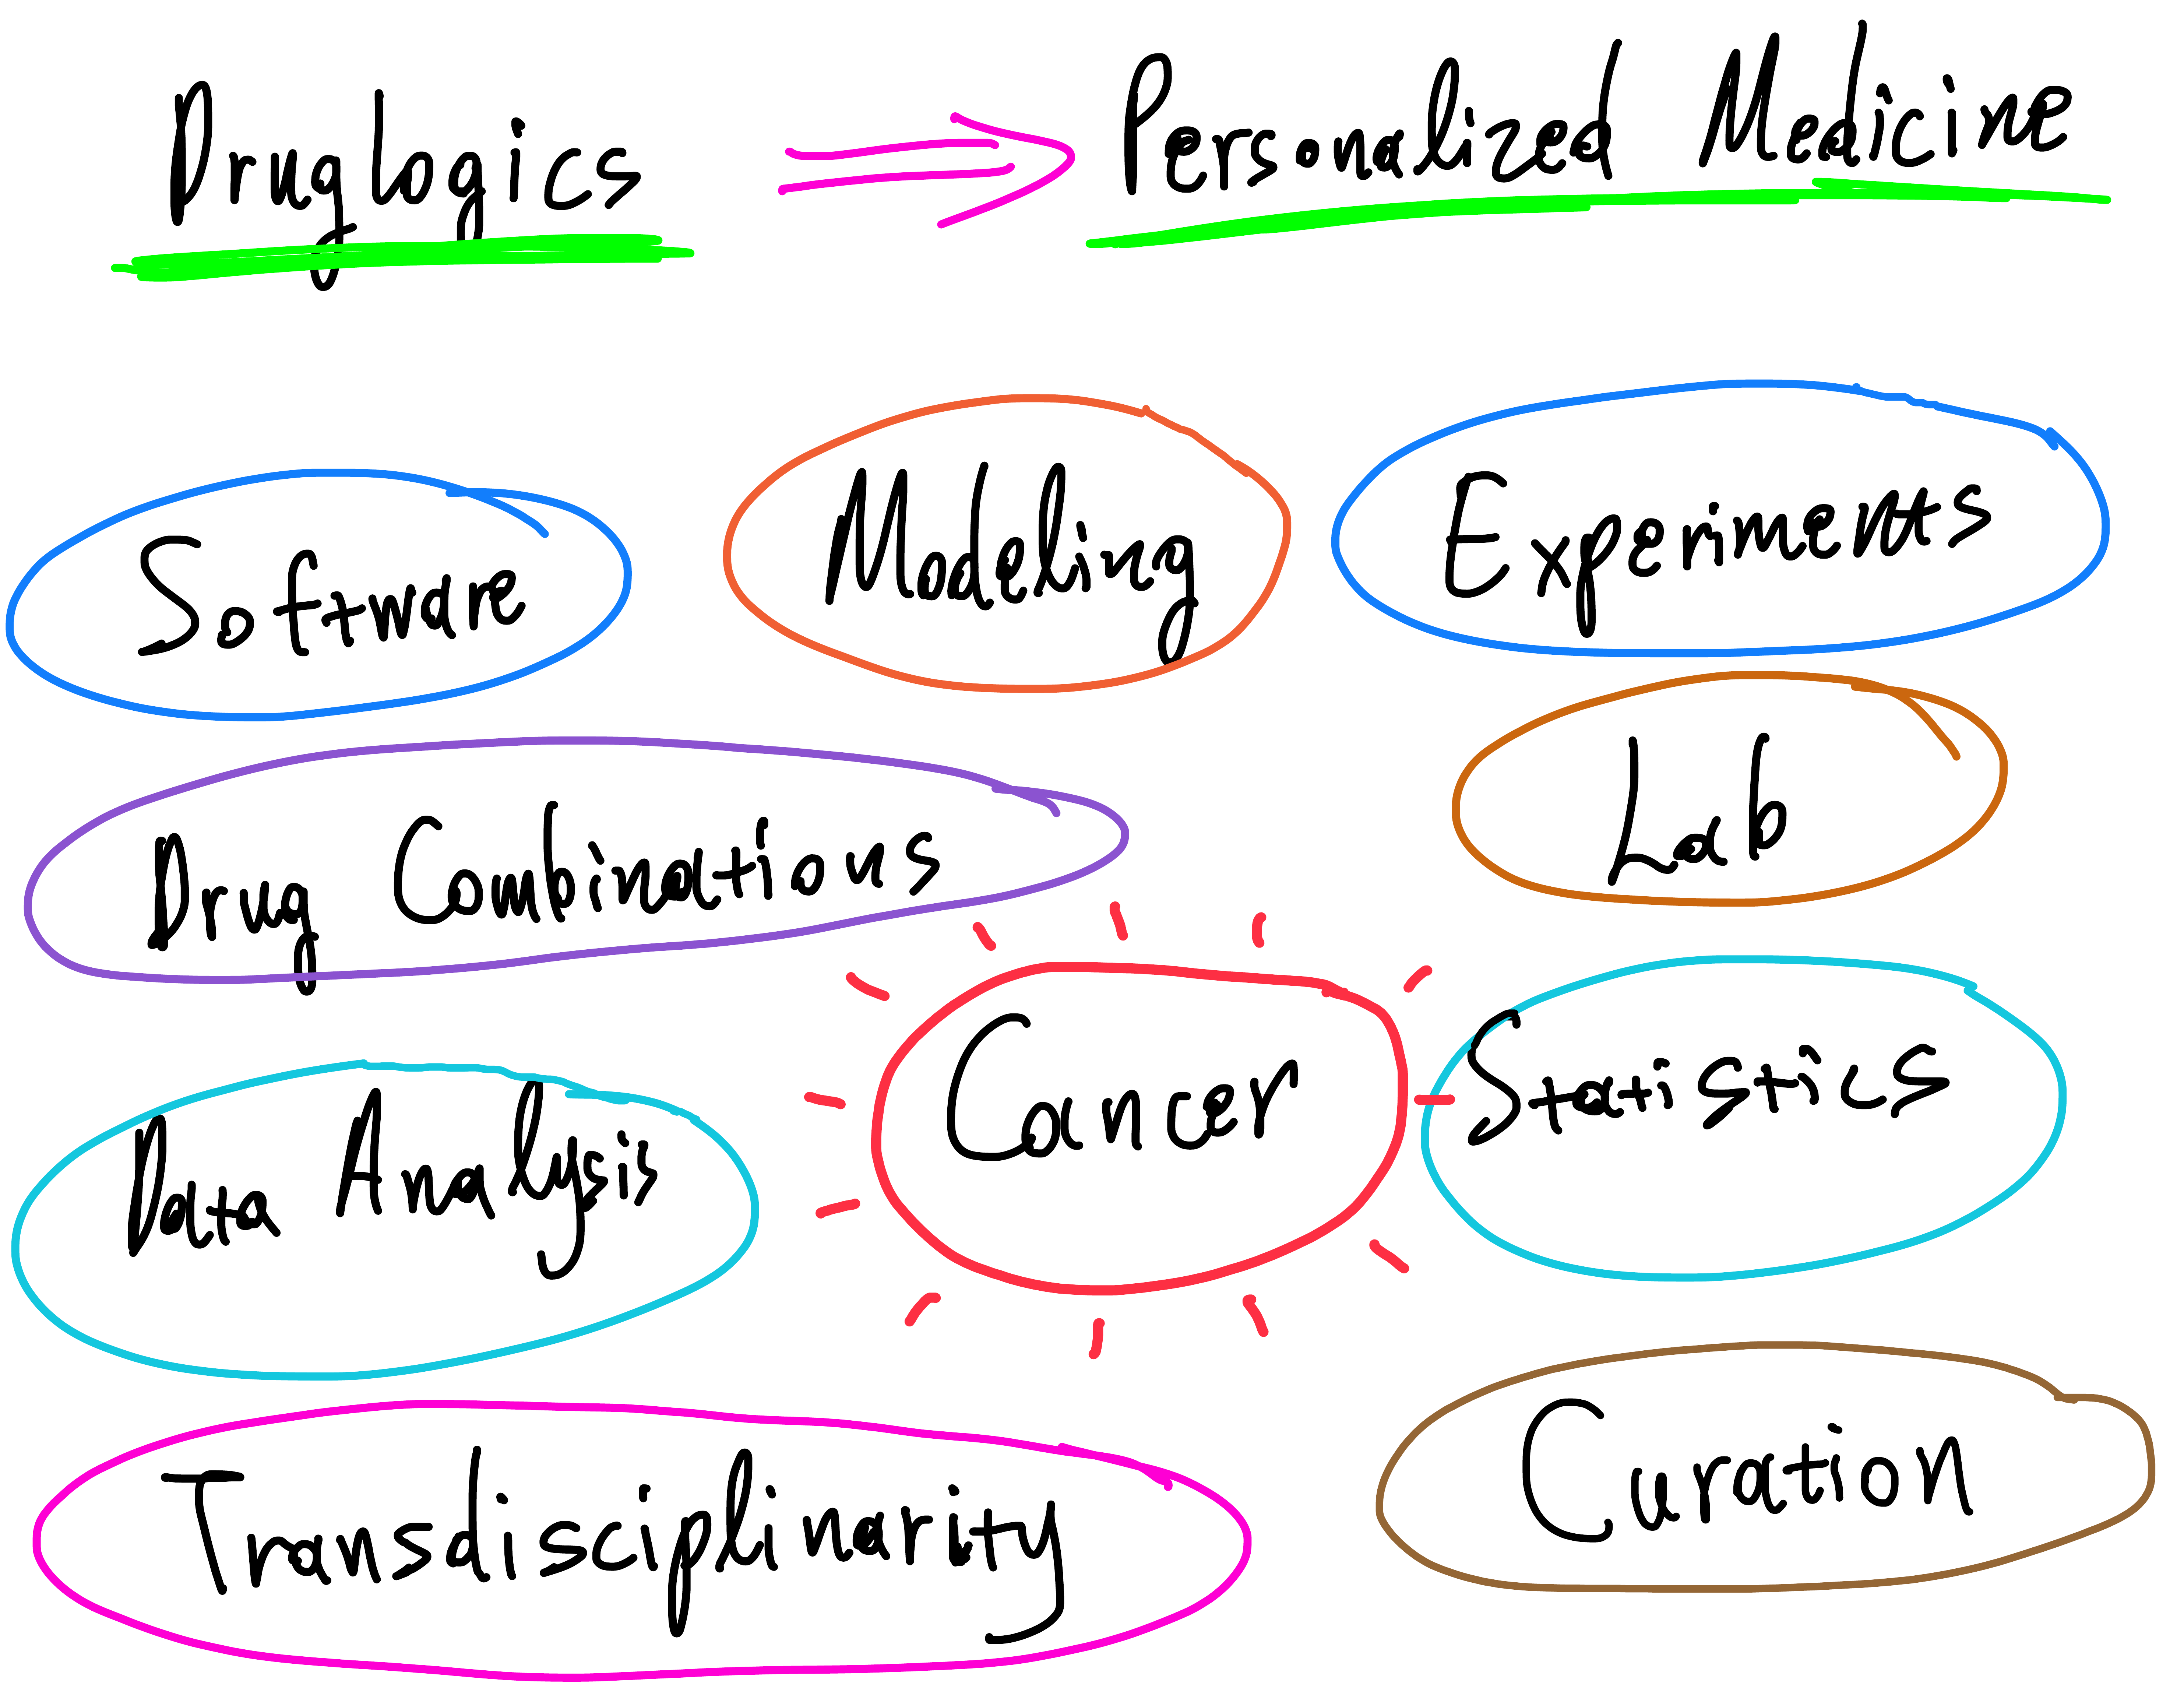 Druglogics ⇒ Personalized Medicine
Software
Modeling
Experiments
Drug Combinations
Lab
Cancer
Statistics
Data Analysis
Transdisciplinarity
Curation